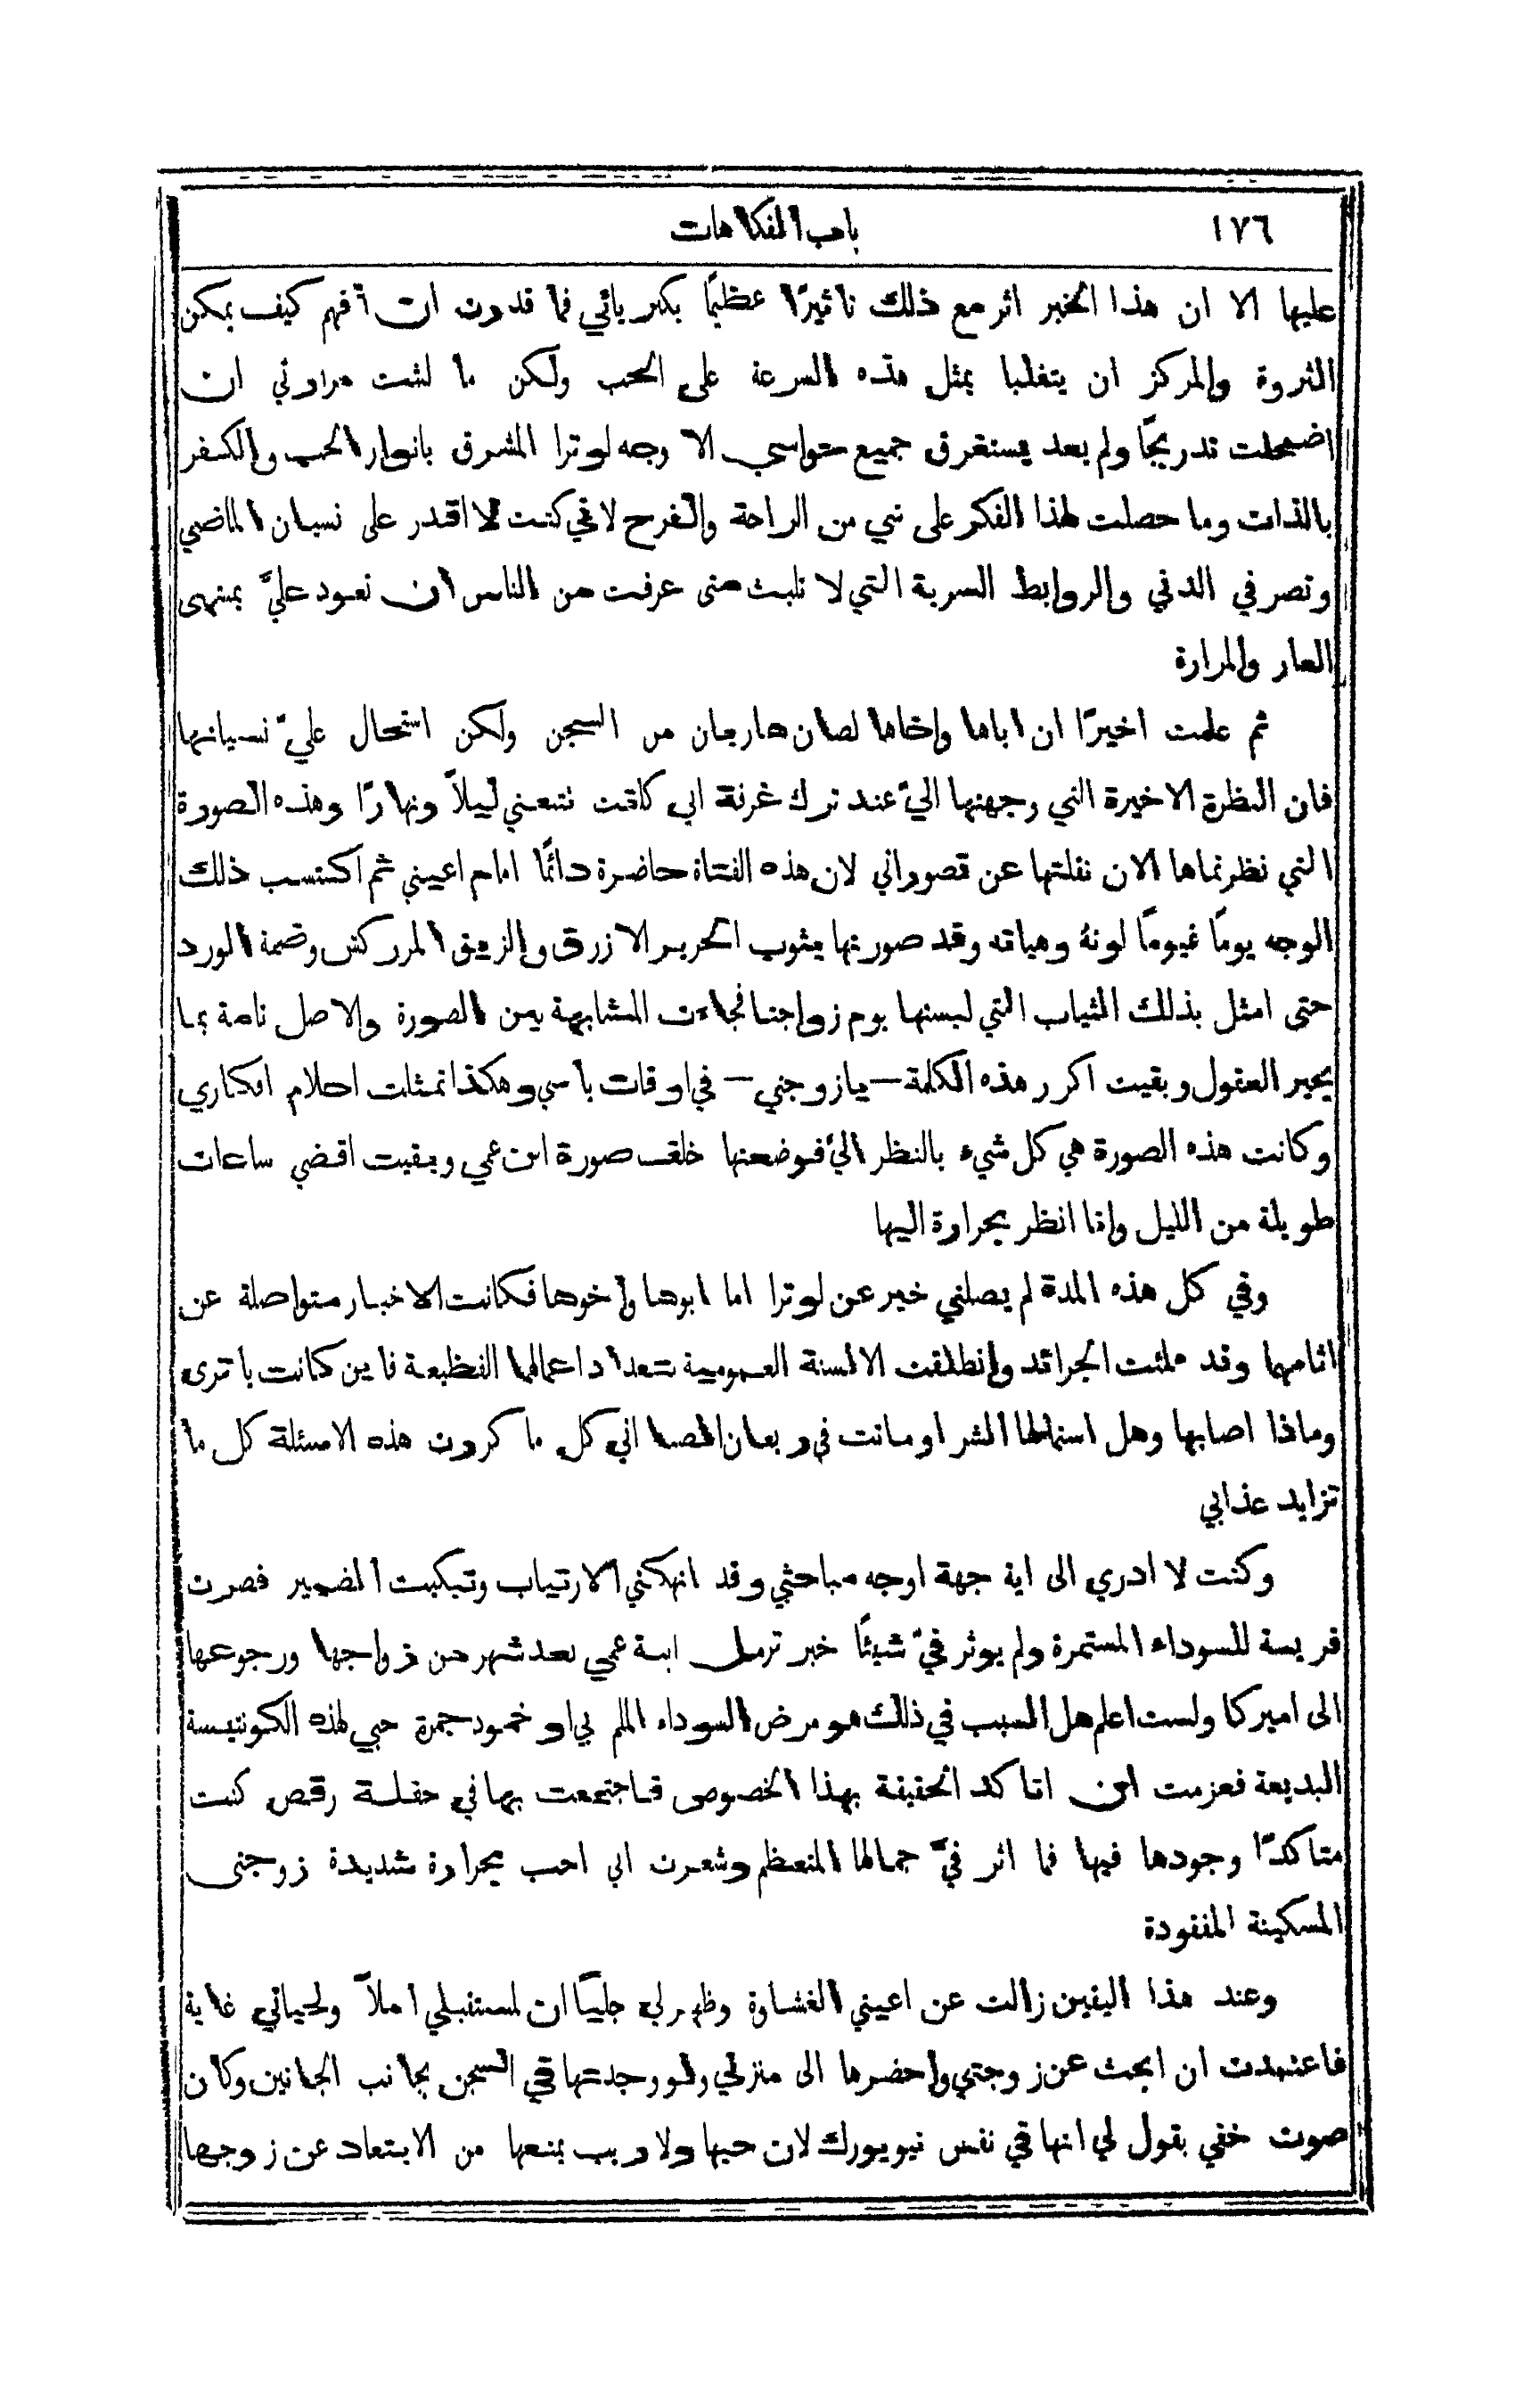 ١٧٦ باب الفكاهات
عليها الا ان هذا الخبر اثر مع ذلك تاثيرًا عظيمًا بكبريائي فما قدرت ان افهم كيف يمكن
الثروة والمركز ان يتغلبا بمثل هذه السرعة على الحب ولكن ما لبثت مرارتي ان
اضمحلت تدريجًا ولم يعد يستغرق جميع حواسي الا وجه لوترا المشرق بانوار الحب والكفر
بالذات وما حصلت لهذا الفكر على شي من الراحة والفرح لاني كنت لا اقدر على نسيان الماضي
وتصرفي الدني والروابط السرية التي لا تلبث متى عرفت من الناس ان تعود عليَّ بمنتهى
العار والمرارة
ثم علمت اخيرًا ان اباها واخاها لصان هاربان من السجن ولكن استحال عليّ نسيانها
فان النظرة الاخيرة التي وجهتها اليّ عند ترك غرفة ابي كانت تتبعني ليلاً ونهارًا وهذه الصورة
التي نظرتماها الان نقلتها عن تصوراتي لان هذه الفتاة حاضرة دائمًا امام اعيني ثم اكتسب ذلك
الوجه يومًا فيومًا لونهُ وهياته وقد صورتها بثوب الحرير الازرق والزيق المزركش وضمة الورد
حتى امثل بذلك الثياب التي لبستها يوم زواجنا فجاءت المشابهة بين الصورة والاصل تامة بما
يحير العقول وبقيت اكرر هذه الكلمة — يا زوجتي — في اوقات ياسي وهكذا تمثلت احلام افكاري
وكانت هذه الصورة هي كل شيء بالنظر اليَّ فوضعتها خلف صورة ابن عمي وبقيت اقضي ساعات
طويلة من الليل وانا انظر بحرارة اليها
وفي كل هذه المدة لم يصلني خبر عن لوترا اما ابوها واخوها فكانت الاخبار متواصلة عن
اثامهما وقد ملئت الجرائد وانطلقت الالسنة العمومية بتعداد اعمالهما الفظيعة فاين كانت يا ترى
وماذا اصابها وهل استمالها الشر او ماتت في ريعان الصبا اني كل ما كررت هذه الاسئلة كل ما
تزايد عذابي
وكنت لا ادري الى اية جهة اوجه مباحثي وقد انهكني الارتياب وتبكيت الضمير فصرت
فريسة للسوداء المستمرة ولم يوثر فيّ شيئًا خبر ترمل ابنة عمي بعد شهر من زواجها ورجوعها
الى اميركا ولست اعلم هل السبب في ذلك هو مرض السوداء الملم بي او خمود جمرة حبي لهذه الكونتيسة
البديعة فعزمت ان اتاكد الحقيقة بهذا الخصوص فاجتمعت بها في حفلة رقص كنت
متاكدًا وجودها فيها فما اثر فيَّ جمالها المتعظم وشعرت اني احب بحرارة شديدة زوجتي
المسكينة المفقودة
وعند هذا اليقين زالت عن اعيني الغشاوة وظهر لي جليًا ان لمستقبلي املاً ولحياتي غاية
فاعتمدت ان ابحث عن زوجتي واحضرها الى منزلي ولو وجدتها في السجن بجانب الجانين وكان
صوت خفي يقول لي انها في نفس نيويورك لان حبها ولا ريب يمنعها من الابتعاد عن زوجها